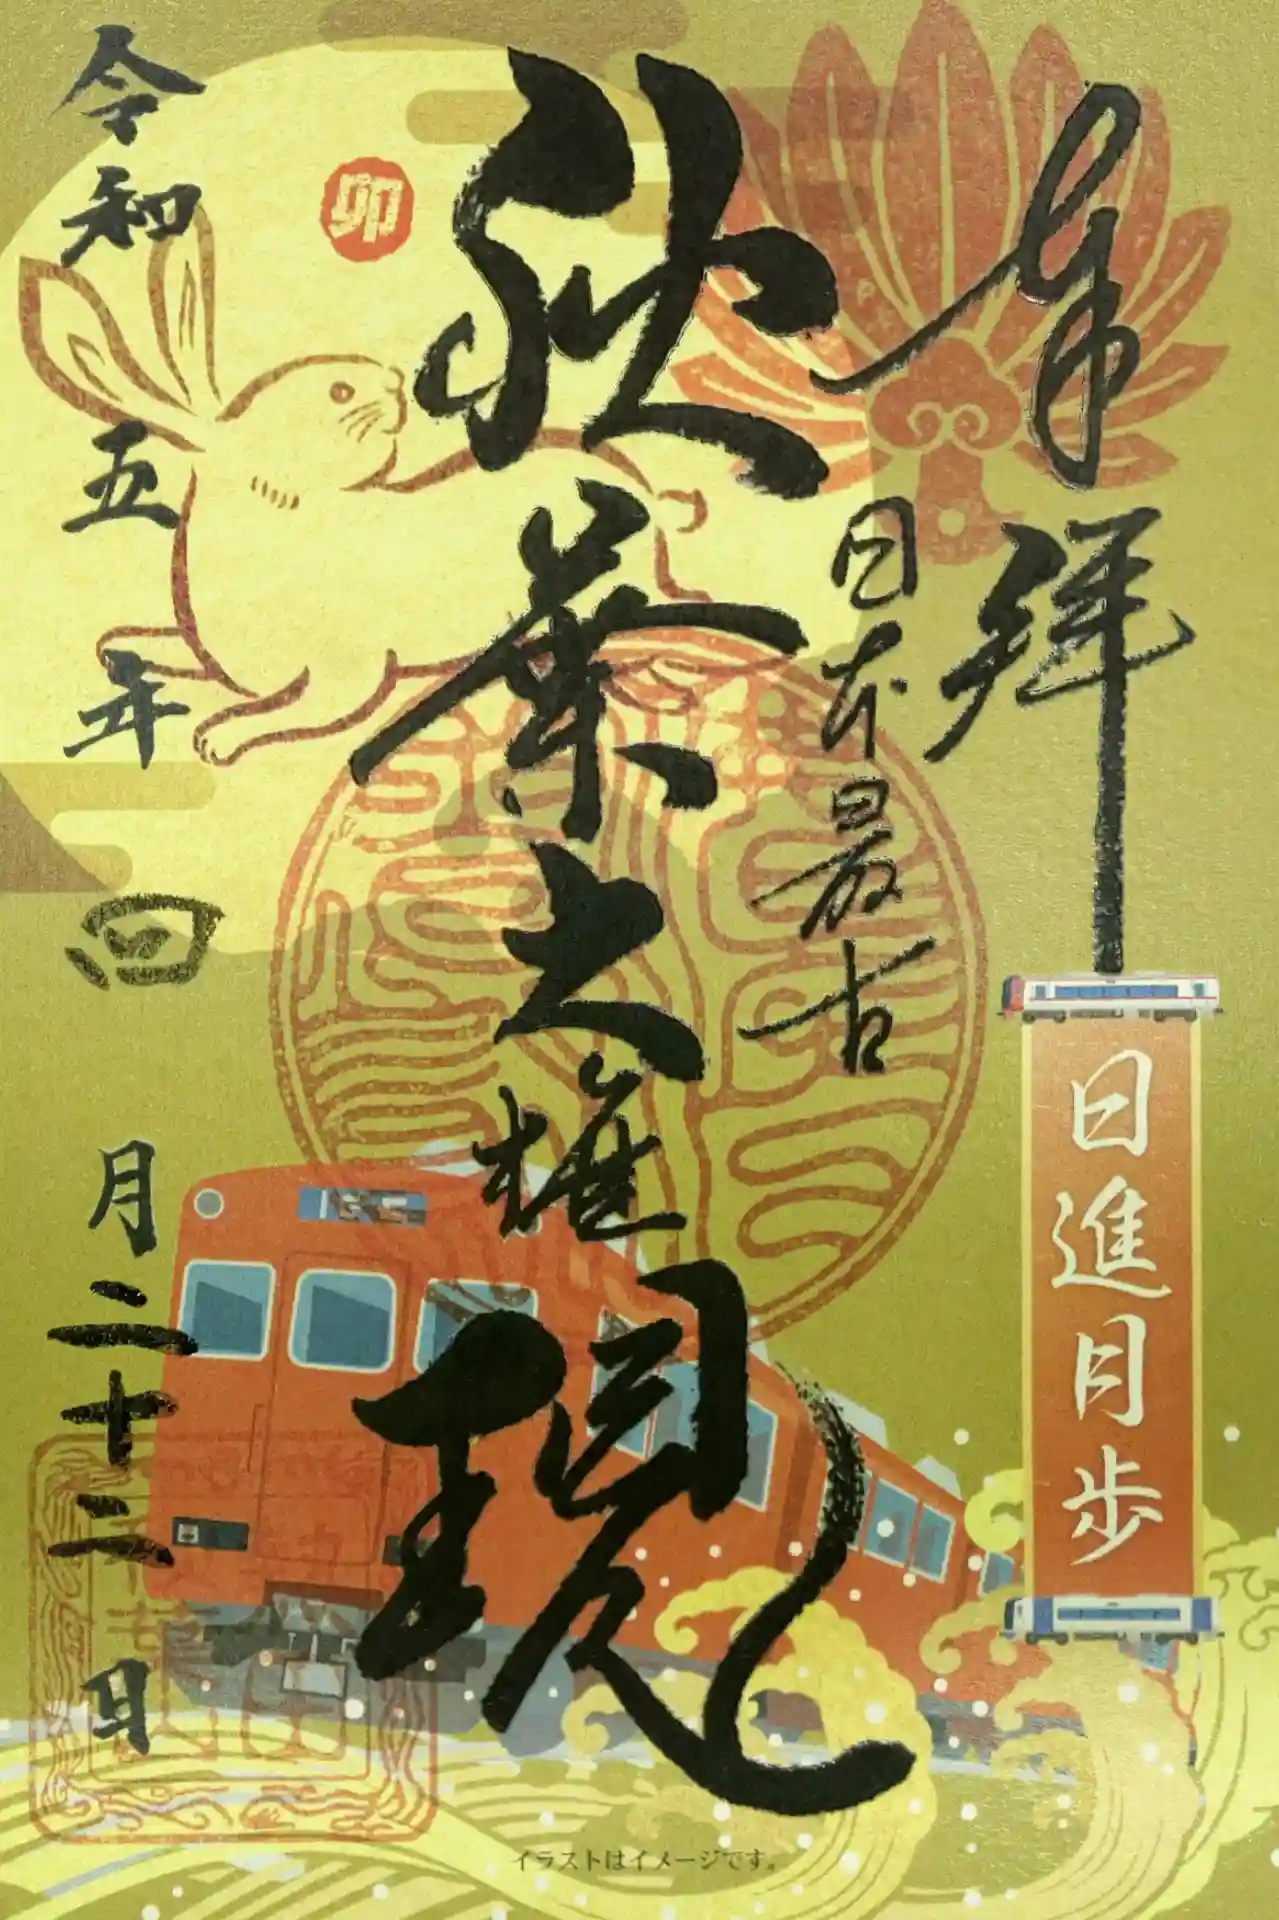 奉拝
日進月歩
日本最古
秋葉大権現
卯
令和五年四月二十二日
イラストはイメージです。